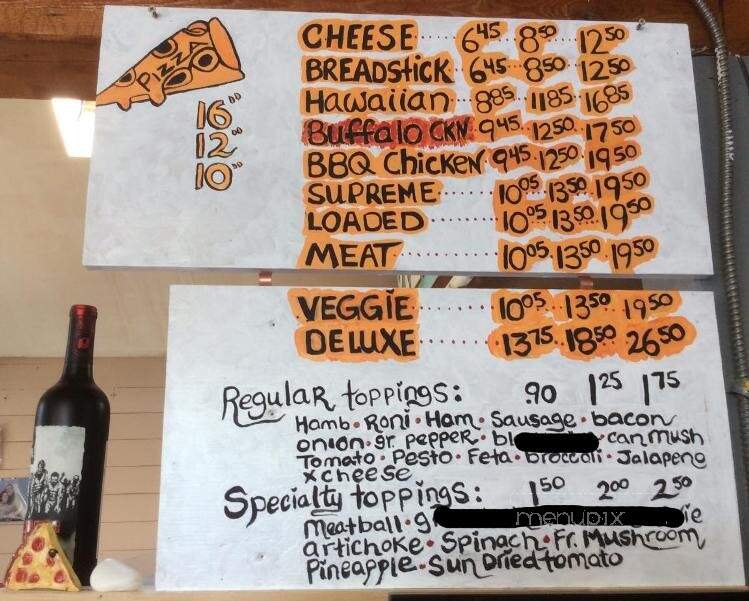 PIZZA
16"
12"
10"
CHEESE 6.45 8.50 12.50
BREADStick 6.45 8.50 12.50
Hawaiian 8.85 11.85 16.85
Buffalo CKN 9.45 12.50 17.50
BBQ Chicken 9.45 12.50 19.50
SUPREME 10.05 13.50 19.50
LOADED 10.05 13.50 19.50
MEAT 10.05 13.50 19.50
VEGGIE 10.05 13.50 19.50
DELUXE 13.75 18.50 26.50
Regular toppings: .90 1.25 1.75
Hamb • Roni • Ham • Sausage • bacon
onion • gr. pepper • can mush
Tomato • Pesto • Feta • broccoli • Jalapeno
x cheese
Specialty toppings: 1.50 2.00 2.50
Meatball •
menupix
artichoke • Spinach • Fr. Mushroom
Pineapple • Sun Dried tomato